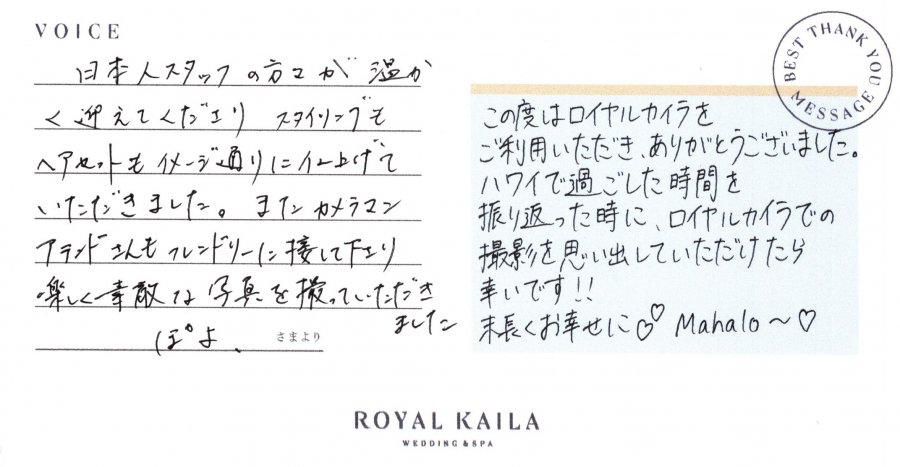 VOICE
日本人スタッフの方々が温か
く迎えてくださり スタイリングも
ヘアセットもイメージ通りに仕上げて
いただきました。またカメラマン
アランドさんもフレンドリーに接して下さり
楽しく素敵な写真を撮っていただき
ました
ぽよ、 さまより
BEST THANK YOU
MESSAGE
この度はロイヤルカイラを
ご利用いただき、ありがとうございました。
ハワイで過ごした時間を
振り返った時に、ロイヤルカイラでの
撮影を思い出していただけたら
幸いです!!
末長くお幸せに♡♡ Mahalo〜♡
ROYAL KAILA
WEDDING & SPA